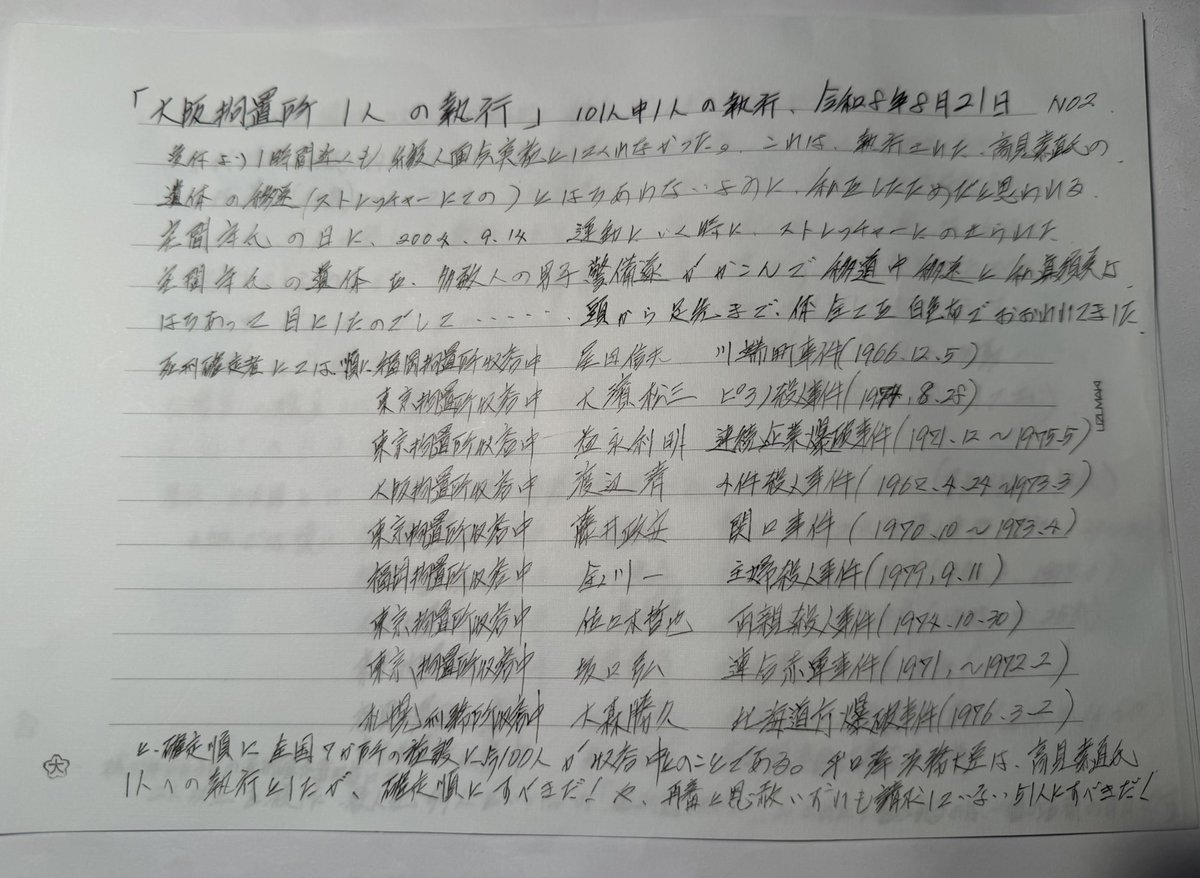 「大阪拘置所 1人 の執行」 101人中1人の執行、令和8年8月21日 NO2.
より1時間近くも 実施にはいれなかった。これは、執行された、高見素直氏の
遺体の搬送(ストレッチャーにての)とはちあわせないように、したためだと思われる
宅間守氏 の日に、2004.9.14 運動にいく時に、ストレッチャーにのせられた
宅間守氏 の遺体を、多数人の男子警備隊がかこんで 搬送中
はちあって目にしたのでして…… 頭から足先まで、体全てを白色布でおおわれていました
死刑確定者にては、順に福岡拘置所収容中 尾田信夫 川端町事件(1966.12.5)
東京拘置所収容中 大濱松三 ピアノ殺人事件(1974.8.28)
東京拘置所収容中 益永利明 連続企業爆破事件(1971.12~1975.5)
大阪拘置所収容中 渡辺清 4件殺人事件(1967.4.24~1973.3)
東京拘置所収容中 藤井政安 関口事件(1970.10~1973.4)
福岡拘置所収容中 金川一 主婦殺人事件(1979.9.11)
東京拘置所収容中 佐々木哲也 両親殺人事件(1974.10.30)
東京拘置所収容中 坂口弘 連合赤軍事件(1971.~1972.2)
札幌刑務所収容中 大森勝久 北海道庁爆破事件(1976.3.2)
と、確定順に全国7か所の施設に約100人が収容中とのことである。平口 法務大臣は、高見素直氏
1人への執行としたが、確定順にすべきだ!や、再審と恩赦いずれも請求していない51人にすべきだ!
LIZLMAKI